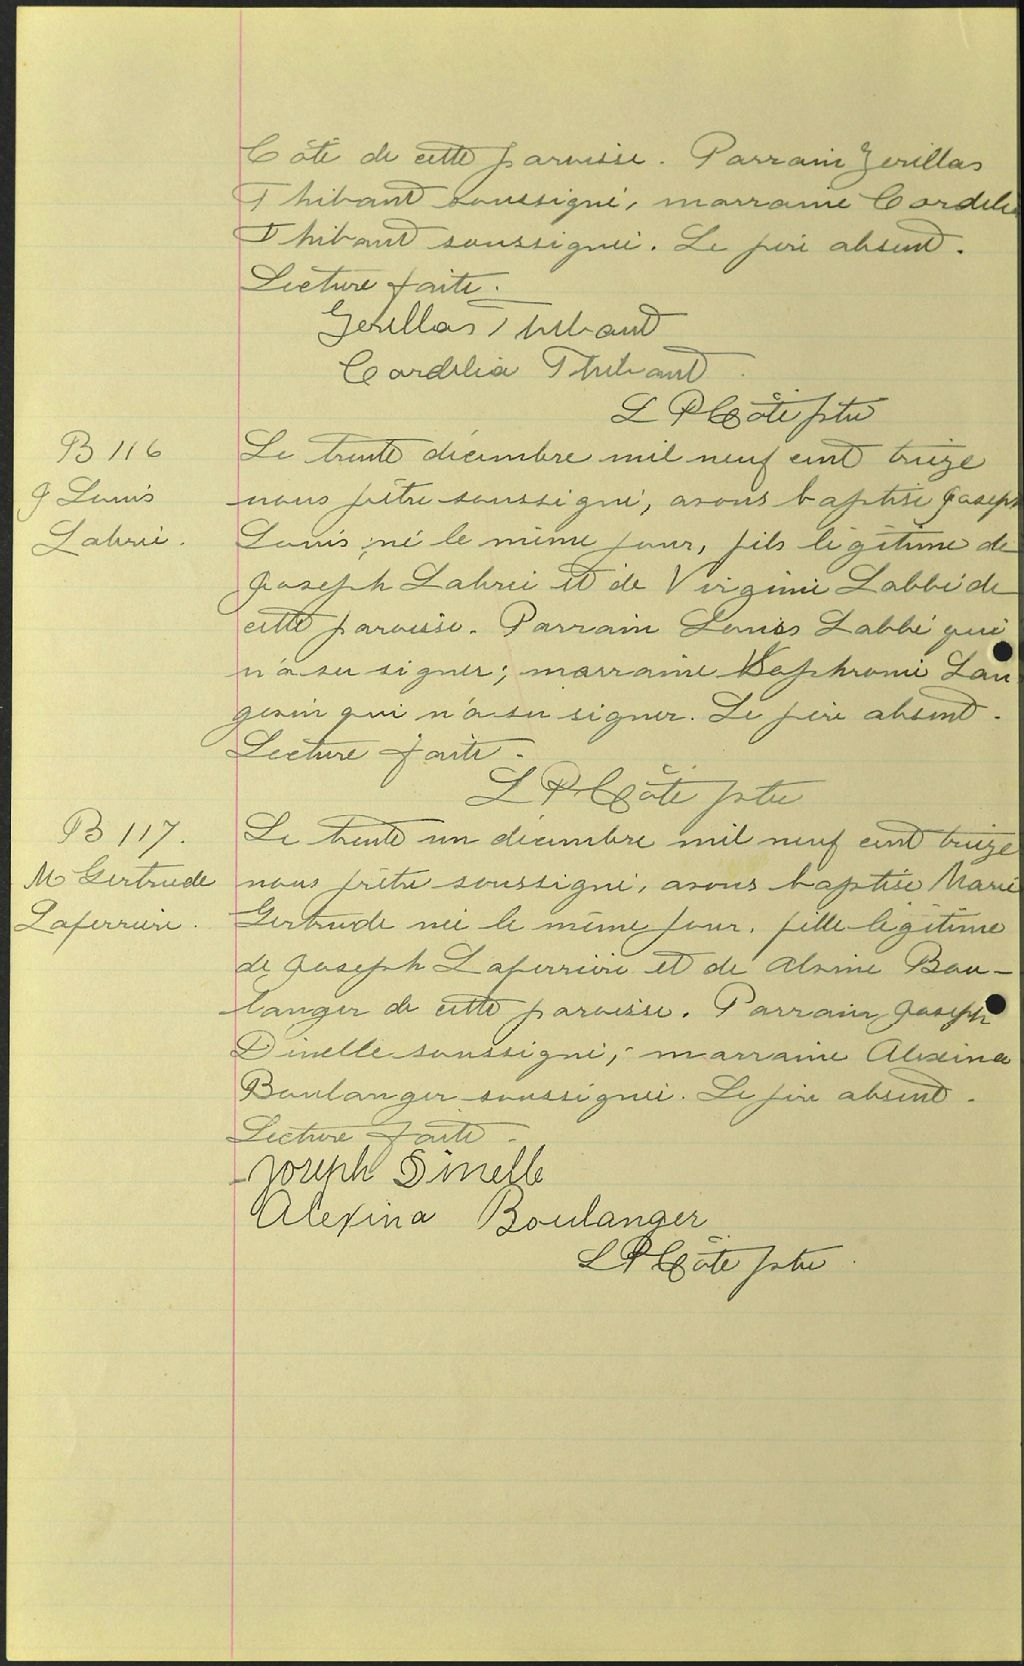 Côté de cette paroisse. Parrain Gerillas
Thibaut soussigné, marraine Cordelia
Thibaut soussignée. Le père absent.
Lecture faite.
Gerillas Thibaut
Cordelia Thibaut
L P Côté ptre
B 116
J Louis
Labrie.
Le trente décembre mil neuf cent treize
nous prêtre soussigné, avons baptisé Joseph
Louis, né le même jour, fils légitime de
Joseph Labrie et de Virginie Labbé de
cette paroisse. Parrain Louis Labbé qui
n'a su signer; marraine Sophronie Lan
gevin qui n'a su signer. Le père absent.
Lecture faite.
L P Côté ptre
B 117.
M Gertrude
Laferrière.
Le trente un décembre mil neuf cent treize
nous prêtre soussigné, avons baptisé Marie
Gertrude née le même jour, fille légitime
de Joseph Laferrière et de Alvine Bou-
langer de cette paroisse. Parrain Joseph
Dinelle soussigné; marraine Alexina
Boulanger soussignée. Le père absent.
Lecture faite.
Joseph Dinelle
Alexina Boulanger
L P Côté ptre